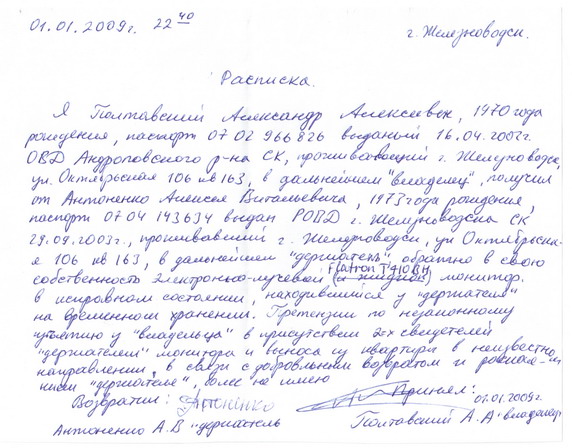 01.01.2009г. 22 40 г. Железноводск.
Расписка.
Я Полтавский Александр Алексеевич, 1970 года
рождения, паспорт 07 02 966826 выданый 16.04.2002г.
ОВД Андроповского р-на СК, проживающий г. Железноводск,
ул. Октябрьская 106 кв 163, в дальнейшем "владелец", получил
от Антоненко Алексея Витальевича, 1973 года рождения,
паспорт 07 04 143634 выдан РОВД г. Железноводска СК
29.09.2003г., проживавший г. Железноводск, ул Октябрьска-
я 106 кв 163, в дальнейшем "держатель", обратно в свою
собственность электронно-лучевой монитор.
в исправном состоянии, находившийся у "держателя"
на временном хранении. Претензии по незаконному
изъятию у "владельца" в присутствии 2-ех свидетелей
"держателем" монитора и выноса из квартиры в неизвестно
направлении, в связи с добровольным возвратом и
"держателе", более не имею
Возвратил: Антоненко Принял: 01.01.2009г.
Антоненко А.В "держатель Полтавский А.А "владелец"